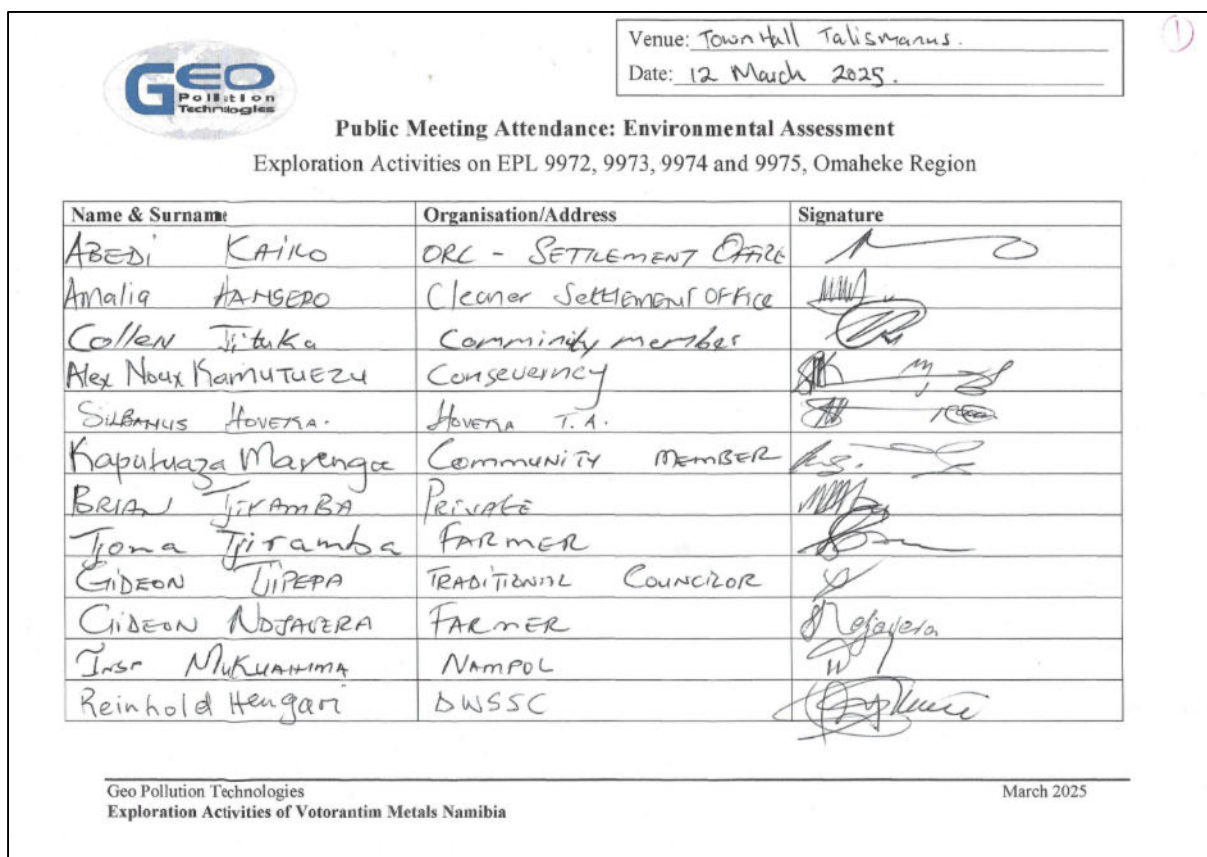 ①
Venue: Town Hall Talismanus.
Date: 12 March 2025.
GEO
Pollution
Technologies
Public Meeting Attendance: Environmental Assessment
Exploration Activities on EPL 9972, 9973, 9974 and 9975, Omaheke Region
Name & Surname Organisation/Address Signature
ABEDI KAIKO ORC - SETTLEMENT OFFICE
Amalia HANSERO Cleaner Settlement Office
Collen Tjituka Comminity member
Alex Noux Kamutuezu Conseverncy
SILBANUS HOVEKA. HOVEKA T.A.
Kaputuaza Marenga Community MEMBER
BRIAN TJIRAMBA PRIVATE
Tjoma Tjiramba FARMER
GIDEON TJIPEPA TRADITIONAL COUNCILOR
GIDEON NDJAVERA FARMER Ndjavera
Insp MUKUAHIMA NAMPOL
Reinhold Hengari DWSSC
Geo Pollution Technologies March 2025
Exploration Activities of Votorantim Metals Namibia